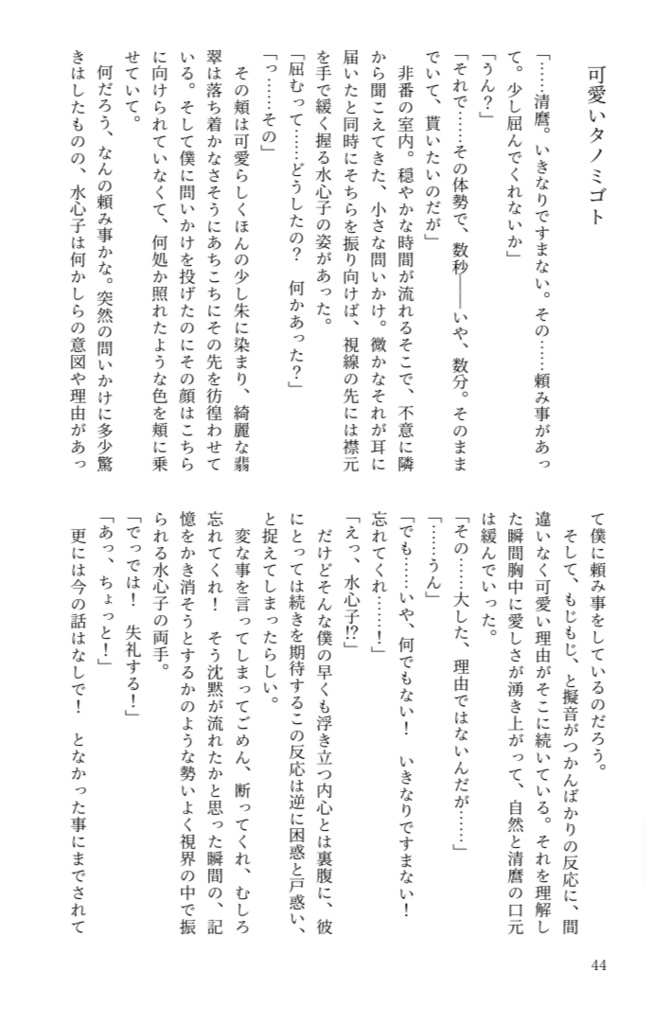 可愛いタノミゴト
「……清麿。いきなりですまない。その……頼み事があっ
て。少し屈んでくれないか」
「うん？」
「それで……その体勢で、数秒――いや、数分。そのまま
でいて、貰いたいのだが」
　非番の室内。穏やかな時間が流れるそこで、不意に隣
から聞こえてきた、小さな問いかけ。微かなそれが耳に
届いたと同時にそちらを振り向けば、視線の先には襟元
を手で緩く握る水心子の姿があった。
「屈むって……どうしたの？　何かあった？」
「っ……その」
　その頬は可愛らしくほんの少し朱に染まり、綺麗な翡
翠は落ち着かなさそうにあちこちにその先を彷徨わせて
いる。そして僕に問いかけを投げたのにその顔はこちら
に向けられていなくて、何処か照れたような色を頬に乗
せていて。
　何だろう、なんの頼み事かな。突然の問いかけに多少驚
きはしたものの、水心子は何かしらの意図や理由があっ
て僕に頼み事をしているのだろう。
　そして、もじもじ、と擬音がつかんばかりの反応に、間
違いなく可愛い理由がそこに続いている。それを理解し
た瞬間胸中に愛しさが湧き上がって、自然と清麿の口元
は緩んでいった。
「その……大した、理由ではないんだが……」
「……うん」
「でも……いや、何でもない！　いきなりですまない！
忘れてくれ……！」
「えっ、水心子!?」
　だけどそんな僕の早くも浮き立つ内心とは裏腹に、彼
にとっては続きを期待するこの反応は逆に困惑と戸惑い、
と捉えてしまったらしい。
　変な事を言ってしまってごめん、断ってくれ、むしろ
忘れてくれ！　そう沈黙が流れたかと思った瞬間の、記
憶をかき消そうとするかのような勢いよく視界の中で振
られる水心子の両手。
「でっでは！　失礼する！」
「あっ、ちょっと！」
　更には今の話はなしで！　となかった事にまでされて
44